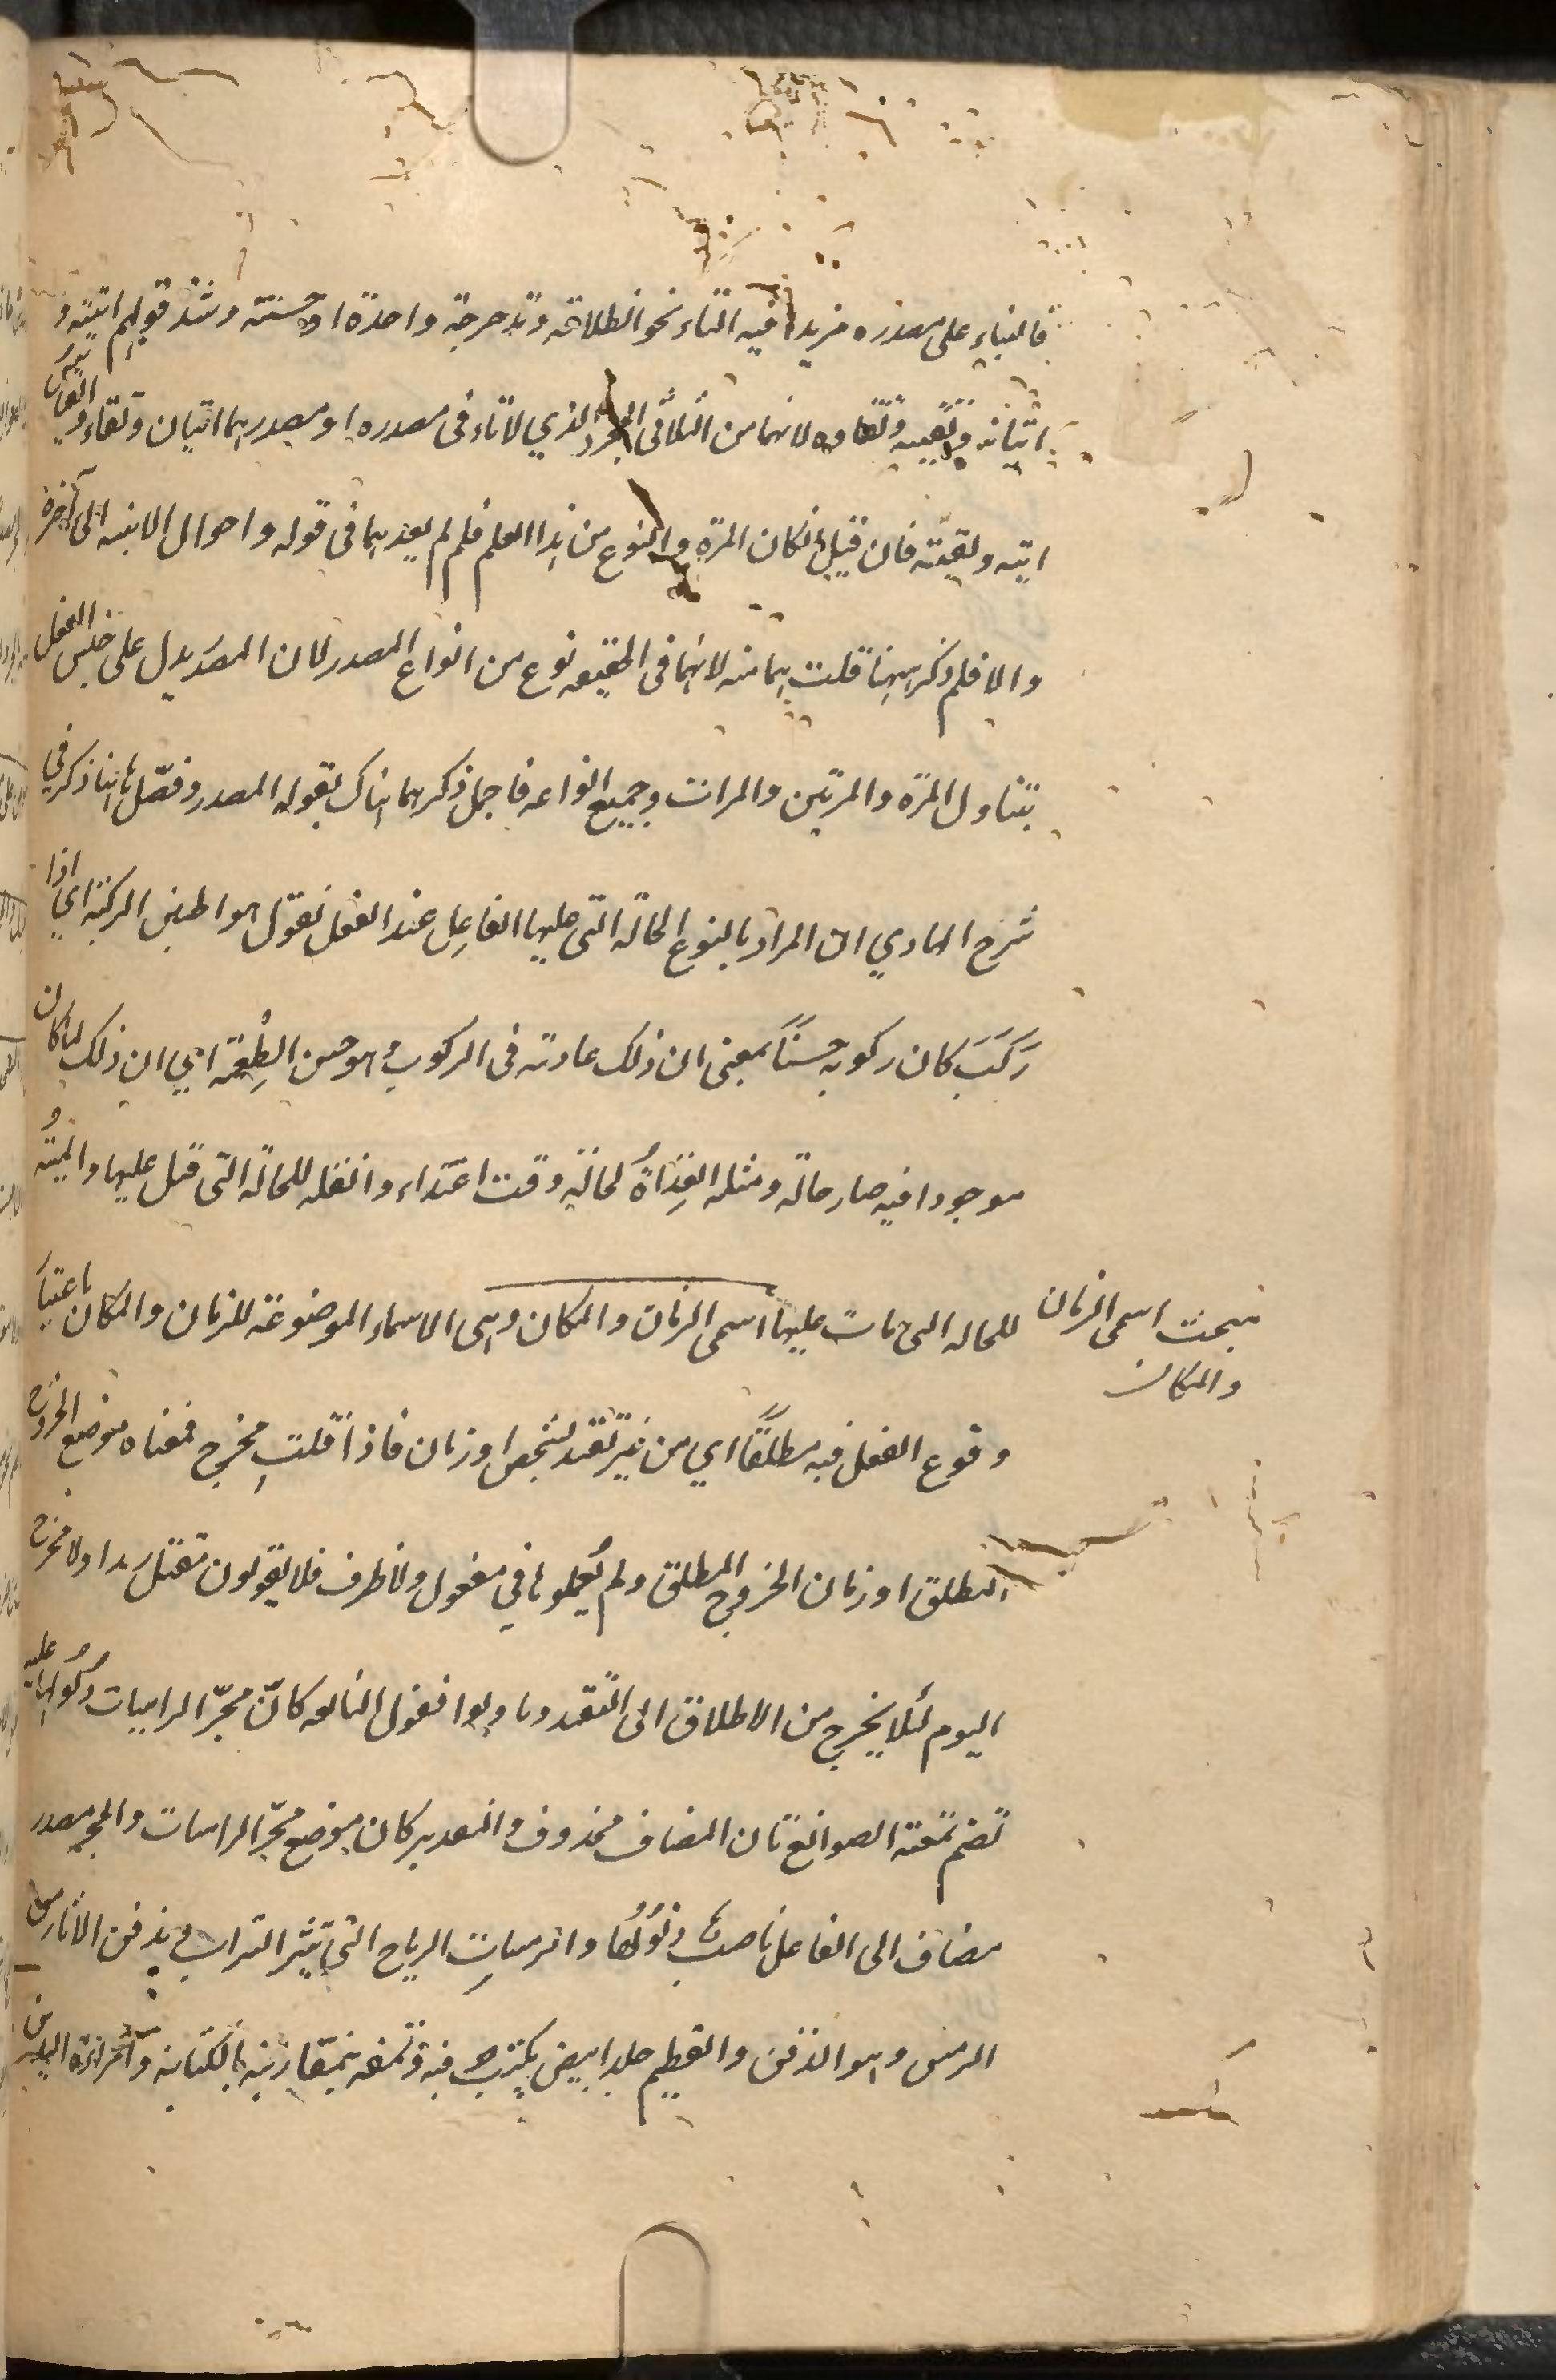 فالبناء على مصدره مزيدا فيه التاء نحو انطلاقة وتدحرجة واحدة او حسنة وشذ قولهم اتيته
اتيانه ولقيته لقاءه لانهما من الثلاثي المجرد الذي لا تاء في مصدره اذ مصدرهما اتيان ولقاء والقياس
اتيه ولقيته فان قيل ان كان المرة والنوع من هذا العلم فلم لم يعدهما في قوله واحوال الابنيه الى آخره
والا فلم ذكر ههنا قلت هما منه لانهما في الحقيقه نوع من انواع المصدر لان المصدر يدل على جنس الفعل
يتناول المرة والمرتين والمرات وجميع انواعه فاجمل ذكرهما هناك بقوله المصدر وفصل هاهنا ذكر في
شرح الهادي ان المراد بالنوع الحالة التي عليها الفاعل عند الفعل نقول هو حسن الركبة اي اذا
رَكَبَ كان ركوبه حسنًا بمعنى ان ذلك عادته في الركوب وهو حسن الطِعمة اي ان ذلك لما كان
موجودا فيه صار حالة ومثله العِذرة لحالة وقت اعتذاره والقتله للحالة التي قتل عليها والميتة
للحاله التي مات عليها اسمى الزمان والمكان وهي الاسماء الموضوعة للزمان والمكان باعتبار
مبحث اسمى الزمان
والمكان
وقوع الفعل فيه مطلقًا اي من غير تقيد بشخص او زمان فاذا قلت مخرج فمعناه موضع الخروج
المطلق او زمان الخروج المطلق ولم يُعملوها في مفعول ولا ظرف فلا يقولون مقتل زيدا ولا مخرج
اليوم لئلا يخرج من الاطلاق الى التقيد وما ولوا فقول النابغه كانّ مجرّ الرامسات ذيولها عليه
قضيم نمقته الصوانع بان المضاف محذوف والتقدير كان موضع مجرّ الرامسات والمجر مصدر
مضاف الى الفاعل ناصب ذيولها والرامسات الرياح التي تثير التراب وتدفن الآثار من
الرمس وهو الدفن والقضيم جلد ابيض يكتب فيه ونمقه نمقا زينه بالكتابة